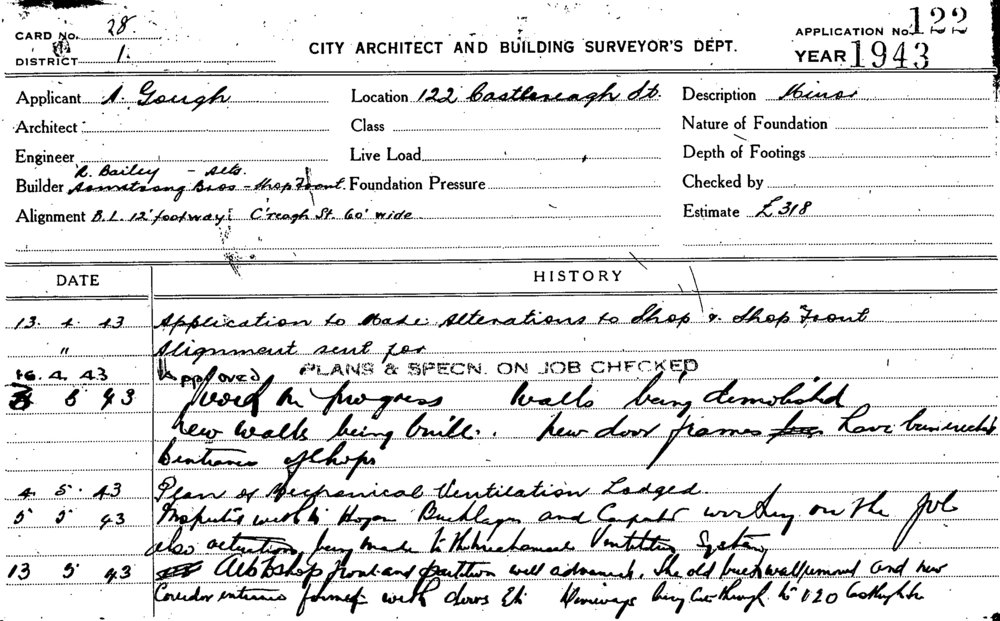 CARD No. 28.
DISTRICT 1.
CITY ARCHITECT AND BUILDING SURVEYOR'S DEPT.
APPLICATION No. 122
YEAR 1943
Applicant A. Gough
Location 122 Castlereagh St.
Description Minor
Architect
Class
Nature of Foundation
Engineer
Live Load
Depth of Footings
R. Bailey - Alts.
Builder Armstrong Bros - Shop Front.
Foundation Pressure
Checked by
Alignment B.L. 12' footway: C'reagh St. 60' wide
Estimate £318
DATE
HISTORY
13. 4. 43 Application to Make Alterations to Shop & Shop Front
" Alignment sent for
16. 4. 43 Approved PLANS & SPECN. ON JOB CHECKED
5 43 Work in progress walls being demolish'd
new walls being built. New door frames have been erected
entrance of Shops
4. 5. 43 Plan of Mechanical Ventilation Lodged.
5 5 43 with Mr Hogan Bricklayer and working on the job
also being made to the Mechanical Ventilation System
13 5 43 shop front and well advanced. The old brick wall and new
Corridor entrance formed with doors Etc being cut through to 120